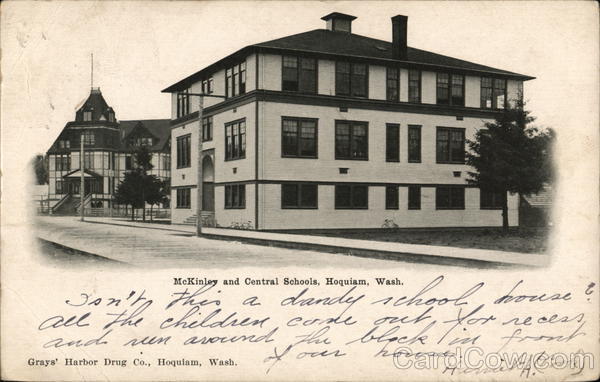 McKinley and Central Schools, Hoquiam, Wash.
Isn't this a dandy school house?
all the children come out for recess
and run around the block in front
Grays' Harbor Drug Co., Hoquiam, Wash.
of our house
CardCow.com